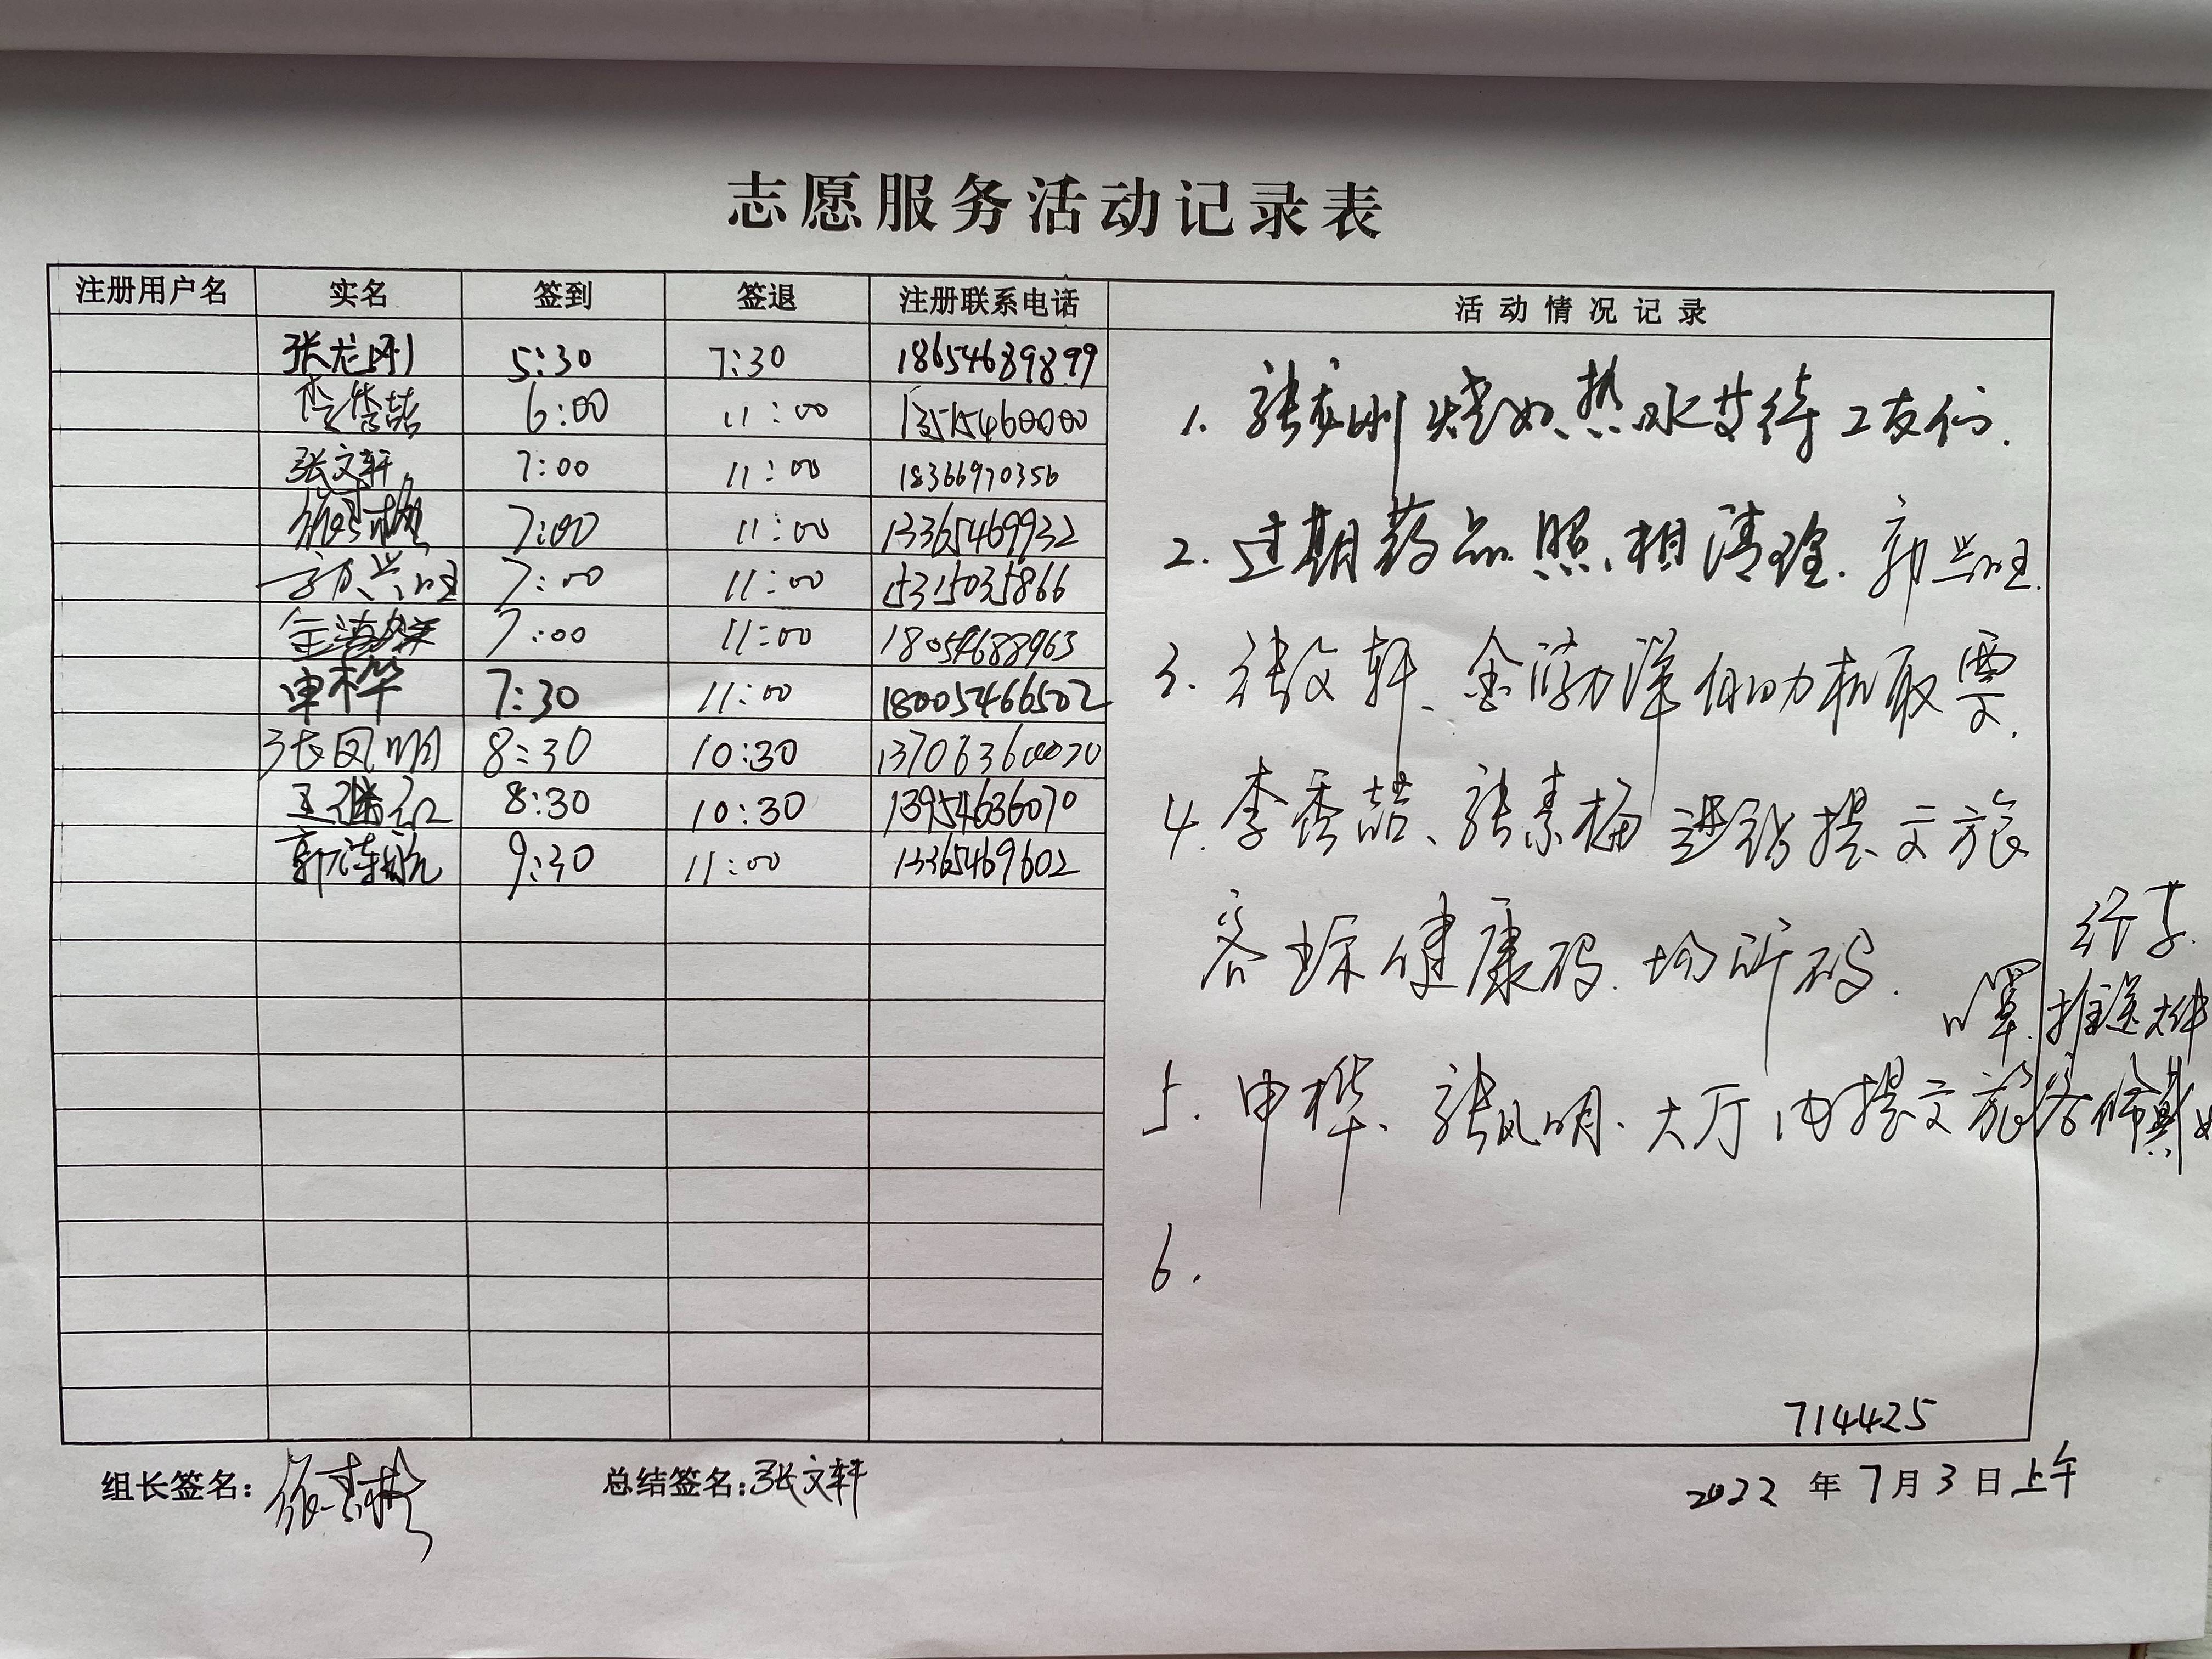 志愿服务活动记录表
注册用户名 实名 签到 签退 注册联系电话 活动情况记录
张龙刚 5:30 7:30 18654689899
李秀喆 6:00 11:00 13515460000
张文轩 7:00 11:00 18366970356
7:00 11:00 13365469932
郭兴旺 7:00 11:00 15315035866
金渤洋 7:00 11:00 18054688963
申桦 7:30 11:00 18005466502
张凤明 8:30 10:30
王继红 8:30 10:30 13954636070
郭涛航 9:30 11:00 13365469602
1. 张龙刚烧好热水等待工友们.
2. 过期药品照相清理. 郭兴旺.
3. 张文轩、金渤洋自助机取票.
4. 李秀喆、张素梅进站提示旅
客扫健康码. 场所码.
5. 申桦、张凤明. 大厅内提示旅客佩戴好
口罩. 推送大件
行李.
6.
714425
组长签名: 总结签名: 张文轩 2022 年 7 月 3 日 上午